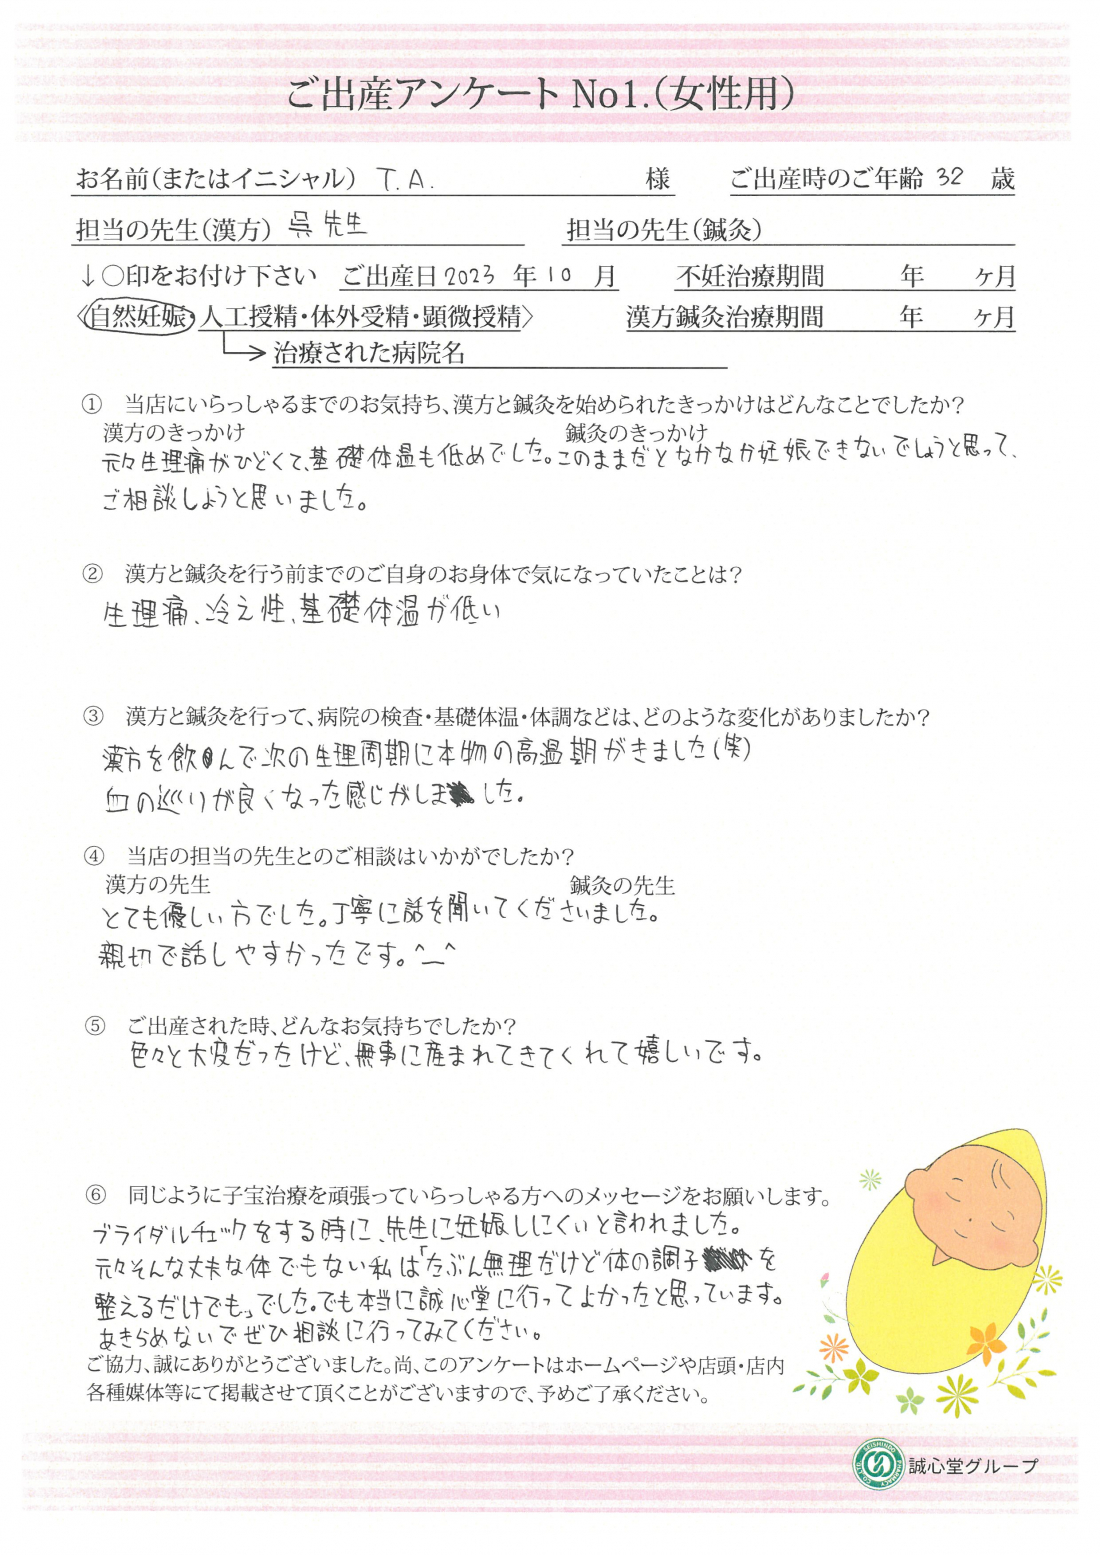 ご出産アンケート No1.(女性用)
お名前(またはイニシャル) T.A. 様 ご出産時のご年齢 32 歳
担当の先生(漢方) 呉先生 担当の先生(鍼灸)
↓○印をお付け下さい ご出産日 2023 年 10 月 不妊治療期間 年 ヶ月
〈自然妊娠・人工授精・体外受精・顕微授精〉 漢方鍼灸治療期間 年 ヶ月
治療された病院名
① 当店にいらっしゃるまでのお気持ち、漢方と鍼灸を始められたきっかけはどんなことでしたか?
漢方のきっかけ 鍼灸のきっかけ
元々生理痛がひどくて、基礎体温も低めでした。このままだとなかなか妊娠できないでしょうと思って、
ご相談しようと思いました。
② 漢方と鍼灸を行う前までのご自身のお身体で気になっていたことは?
生理痛、冷え性、基礎体温が低い
③ 漢方と鍼灸を行って、病院の検査・基礎体温・体調などは、どのような変化がありましたか?
漢方を飲んで次の生理周期に本物の高温期がきました(笑)
血の巡りが良くなった感じがしました。
④ 当店の担当の先生とのご相談はいかがでしたか?
漢方の先生 鍼灸の先生
とても優しい方でした。丁寧に話を聞いてくださいました。
親切で話しやすかったです。^_^
⑤ ご出産された時、どんなお気持ちでしたか?
色々と大変だったけど、無事に産まれてきてくれて嬉しいです。
⑥ 同じように子宝治療を頑張っていらっしゃる方へのメッセージをお願いします。
ブライダルチェックをする時に、先生に妊娠しにくいと言われました。
元々そんな丈夫な体でもない私は「たぶん無理だけど体の調子を
整えるだけでも」でした。でも本当に誠心堂に行ってよかったと思っています。
あきらめないでぜひ相談に行ってみてください。
ご協力、誠にありがとうございました。尚、このアンケートはホームページや店頭・店内
各種媒体等にて掲載させて頂くことがございますので、予めご了承ください。
SEISHINDO PHARMACY CO.,LTD. 誠心堂グループ